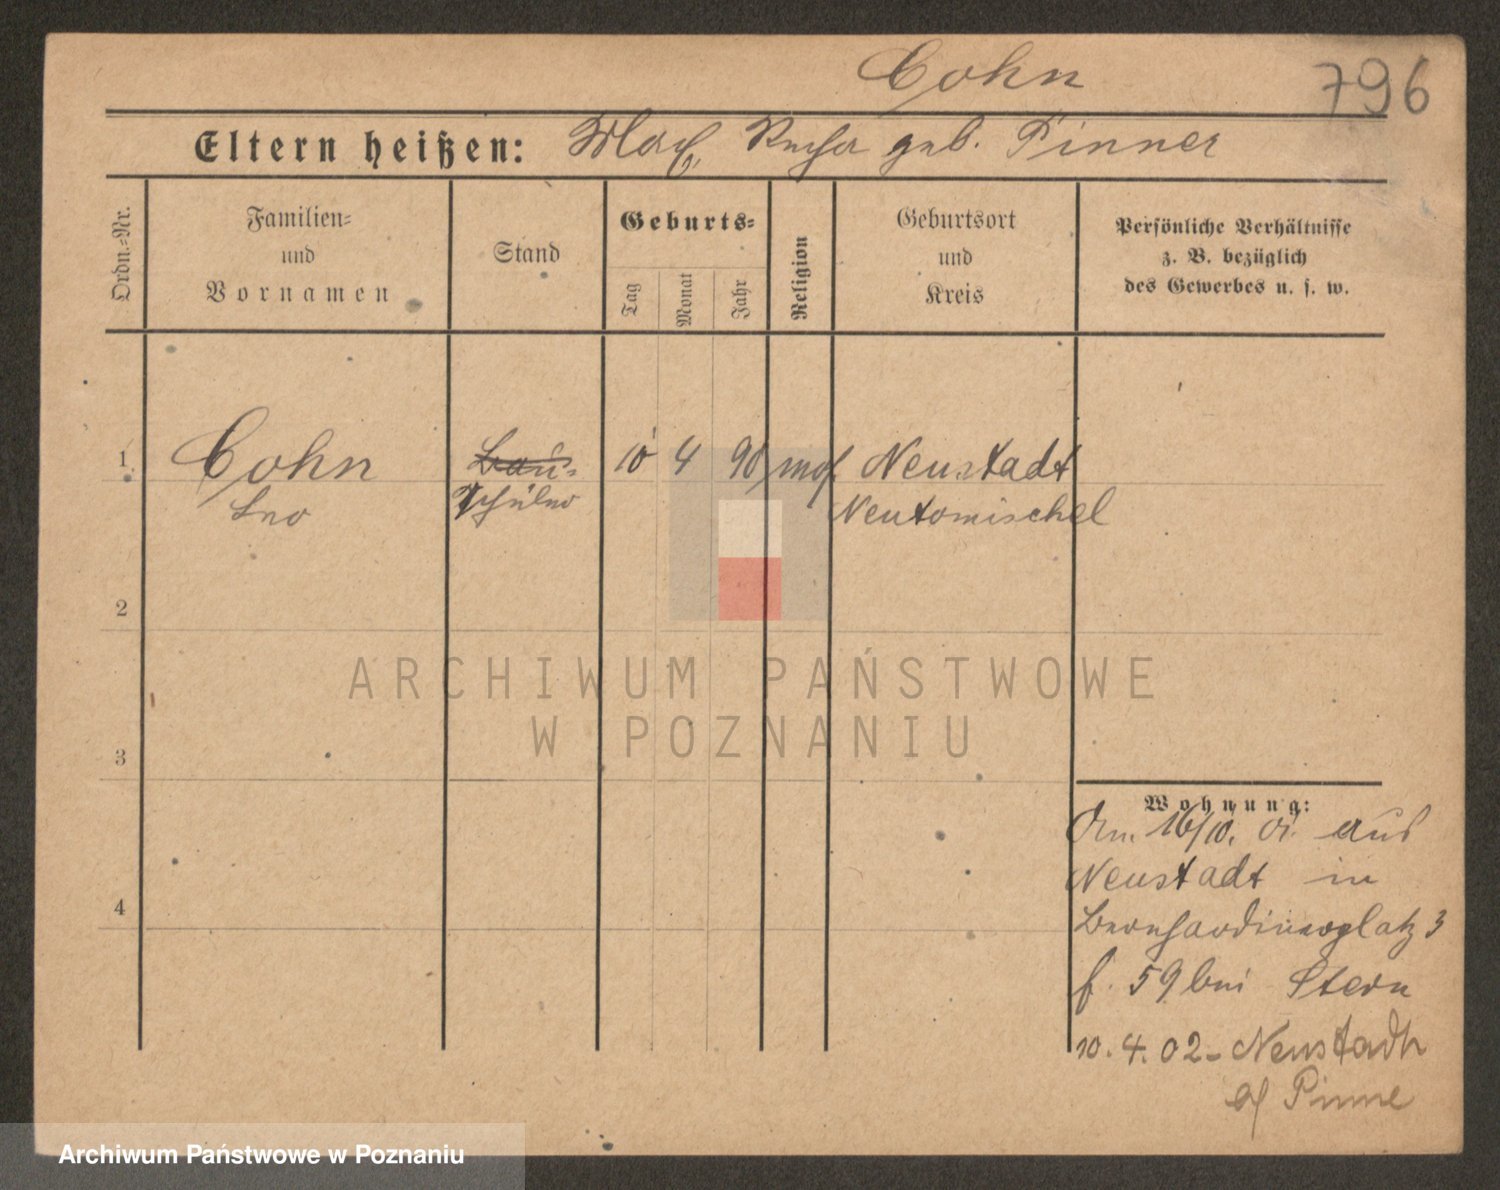 Cohn
796
Eltern heißen: Max, Rosa geb. Pinner
Ordn.-Nr.
Familien-
und
Vornamen
Stand
Geburts-
Tag
Monat
Jahr
Religion
Geburtsort
und
Kreis
Persönliche Verhältnisse
z. B. bezüglich
des Gewerbes u. s. w.
1 Cohn 10 4 90 mos. Neustadt
Leo Schüler Neutomischel
2
3
4
ARCHIWUM PAŃSTWOWE
W POZNANIU
Wohnung:
16/10. 01. aus
Neustadt in
Bernhardinerplatz 3
f. 59 bei Stern
10. 4. 02 - Neustadt
Pinne
Archiwum Państwowe w Poznaniu